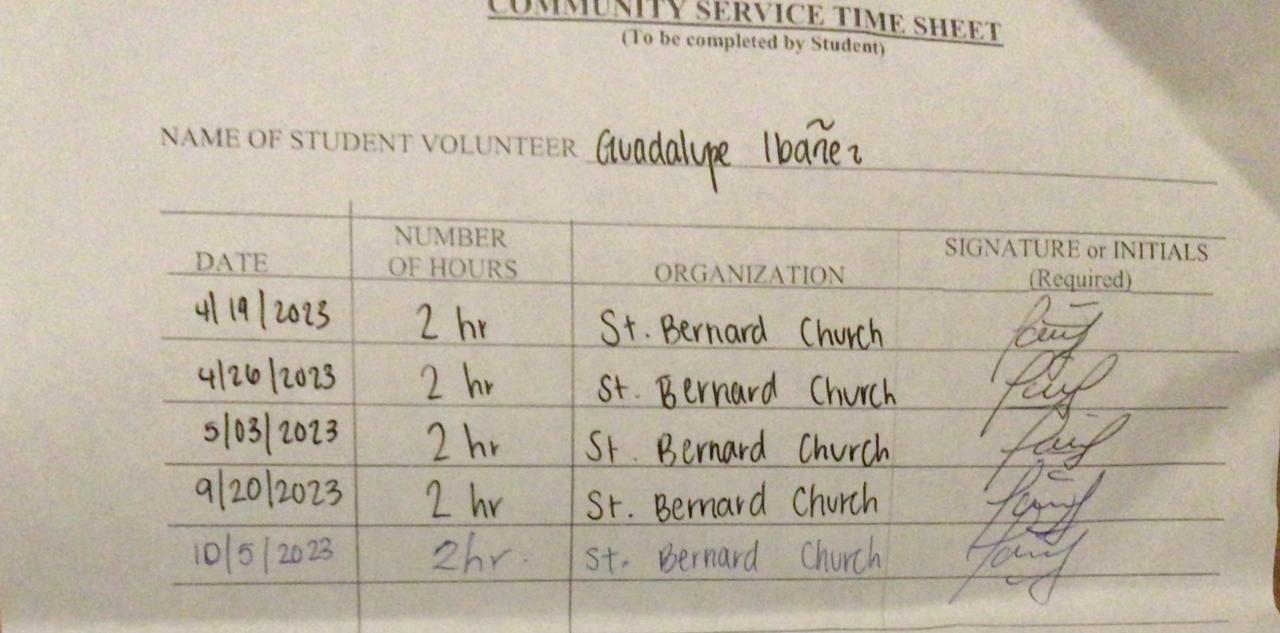 COMMUNITY SERVICE TIME SHEET
(To be completed by Student)
NAME OF STUDENT VOLUNTEER Guadalupe Ibañez
DATE NUMBER OF HOURS ORGANIZATION SIGNATURE or INITIALS (Required)
4/19/2023 2 hr St. Bernard Church
4/26/2023 2 hr St. Bernard Church
5/03/2023 2 hr St. Bernard Church
9/20/2023 2 hr St. Bernard Church
10/5/2023 2hr. St. Bernard Church